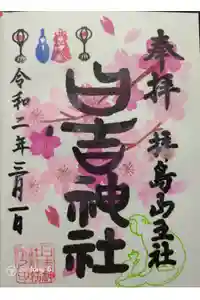 奉拝
拝島山王社
日吉神社
令和二年三月一日